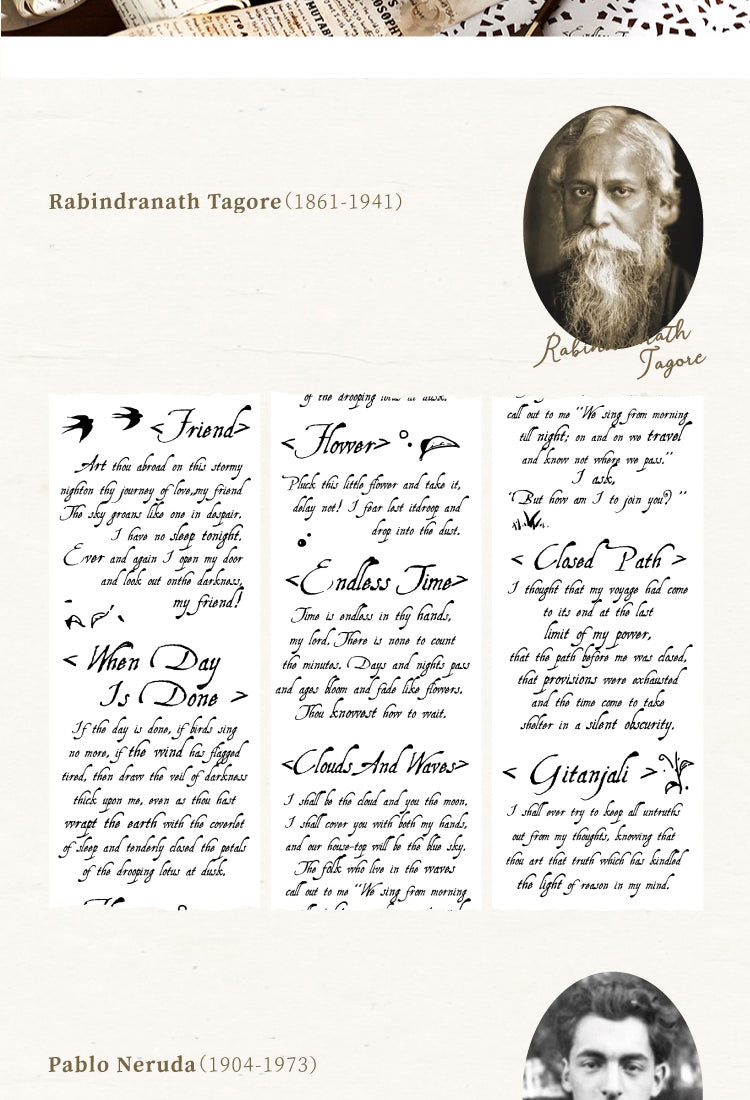 MUTAB
OSOPHY
Rabindranath Tagore(1861-1941)
Rabindranath
Tagore
<Friend>
Art thou abroad on this stormy
nighton thy journey of love,my friend
The sky groans like one in despair.
I have no sleep tonight.
Ever and again I open my door
and look out onthe darkness,
my friend!
< When Day
Is Done >
If the day is done, if birds sing
no more, if the wind has flagged
tired, then draw the veil of darkness
thick upon me, even as thou hast
wrapt the earth with the coverlet
of sleep and tenderly closed the petals
of the drooping lotus at dusk.
of the drooping lotus at dusk.
<Flower>
Pluck this little flower and take it,
delay not! I fear lest itdroop and
drop into the dust.
<Endless Time>
Time is endless in thy hands,
my lord. There is none to count
the minutes. Days and nights pass
and ages bloom and fade like flowers.
Thou knowest how to wait.
<Clouds And Waves>
I shall be the cloud and you the moon.
I shall cover you with both my hands,
and our house-top will be the blue sky.
The folk who live in the waves
call out to me "We sing from morning
call out to me "We sing from morning
till night; on and on we travel
and know not where we pass."
I ask,
"But how am I to join you? "
< Closed Path >
I thought that my voyage had come
to its end at the last
limit of my power,
that the path before me was closed,
that provisions were exhausted
and the time come to take
shelter in a silent obscurity.
< Gitanjali >
I shall ever try to keep all untruths
out from my thoughts, knowing that
thou art that truth which has kindled
the light of reason in my mind.
Pablo Neruda(1904-1973)